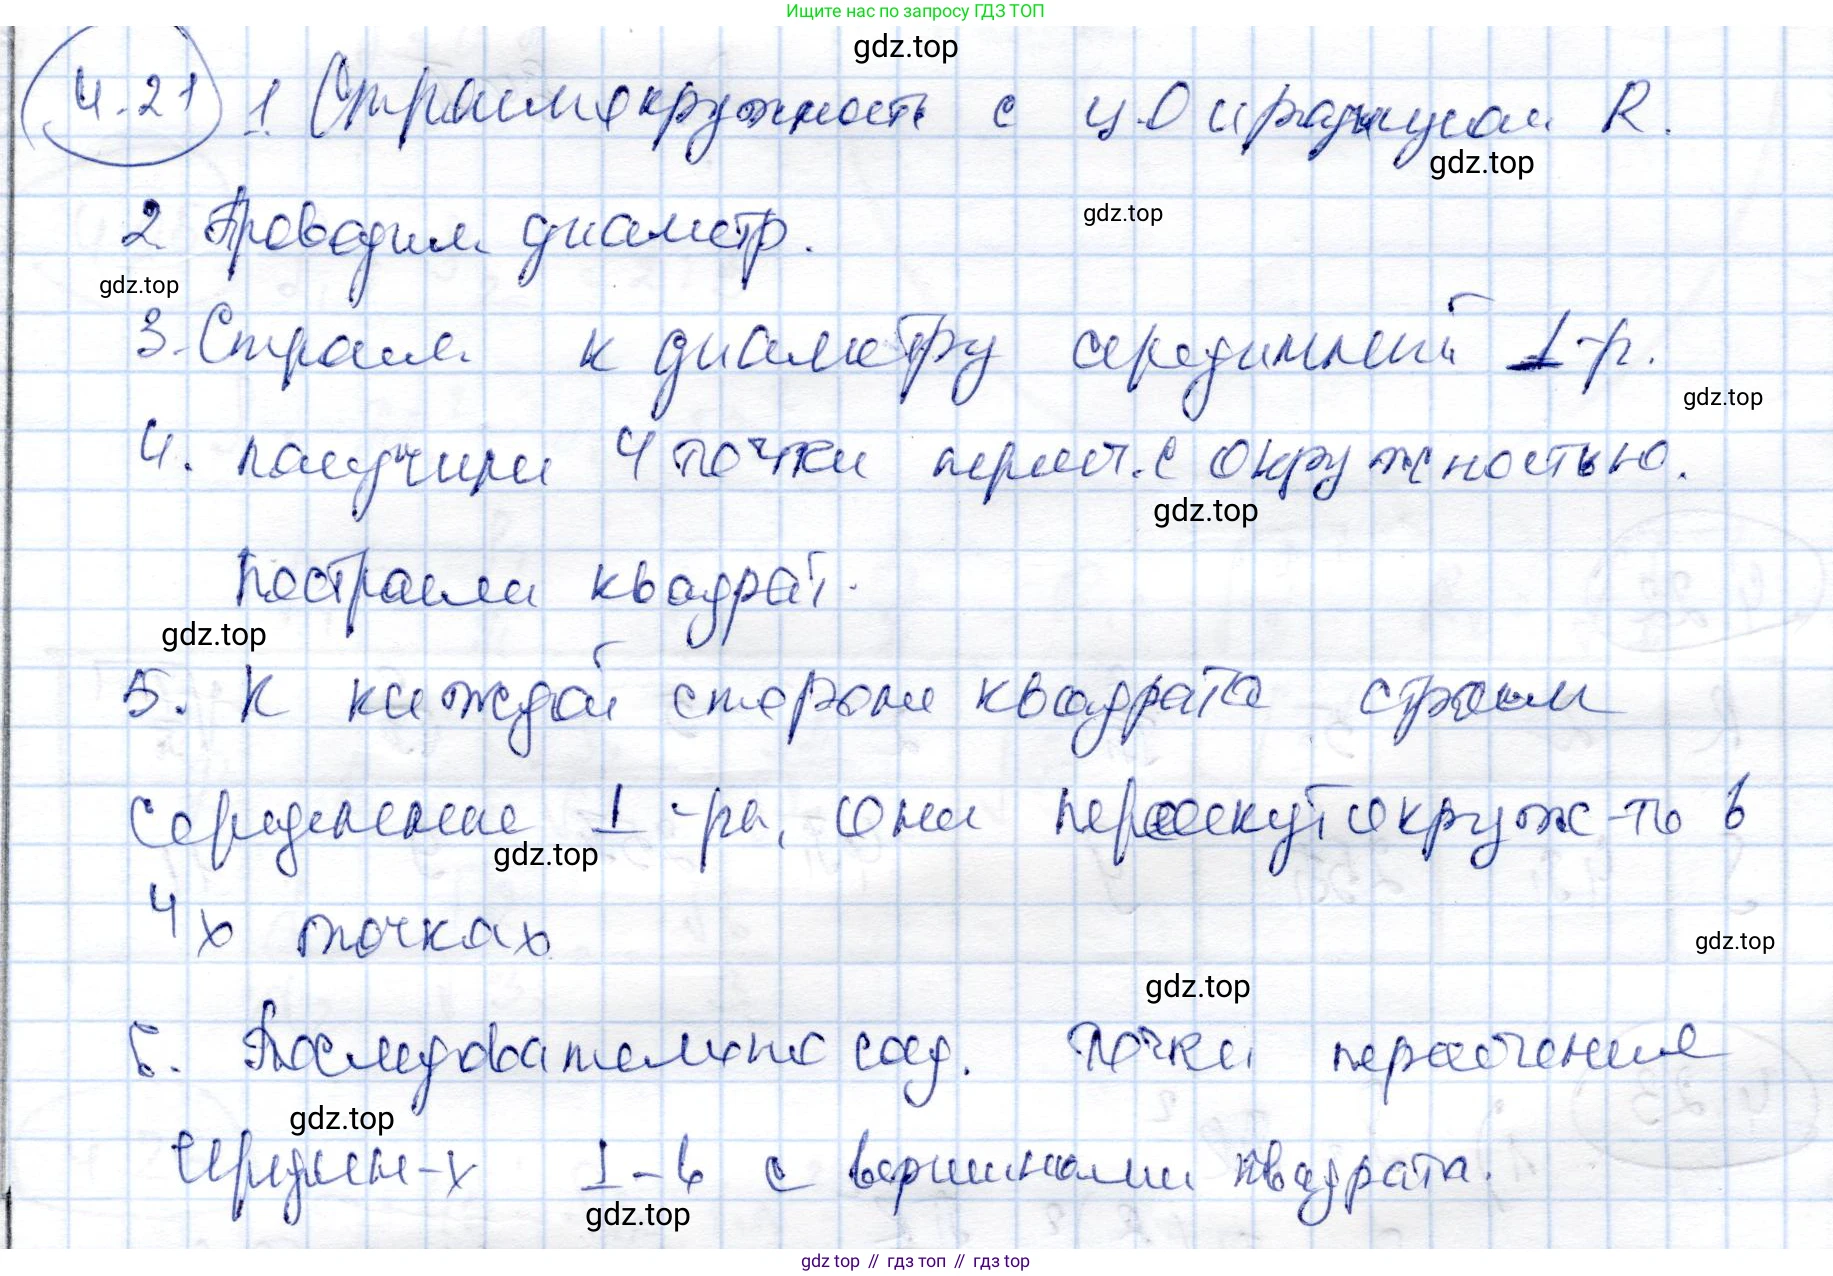 Ищите нас по запросу ГДЗ ТОП
gdz.top
4.21 1. Строим окружность с ц. О и радиусом R.
gdz.top
2. Проводим диаметр.
gdz.top
gdz.top
3. Строим к диаметру серединный ⊥-р.
gdz.top
4. получили 4 точки перес. с окружностью.
gdz.top
построили квадрат.
gdz.top
5. К каждой стороне квадрата строим
серединные ⊥-ры, они пересекут окруж-ть в
gdz.top
4х точках
gdz.top
gdz.top
6. Последовательно соед. точки пересечения
gdz.top
середин-х ⊥-в с вершинами квадрата.
gdz.top
gdz top // гдз топ // гдз top